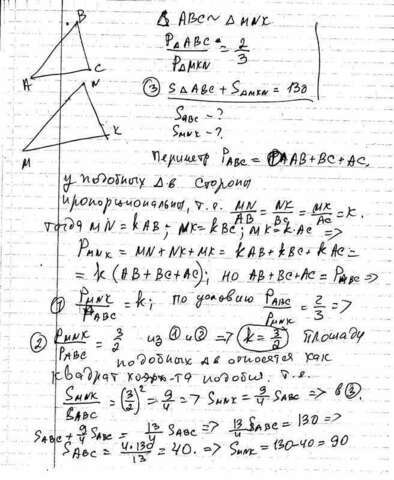 B
A
C
N
M
K
Δ ABC ~ Δ MNK
PΔABC / PΔMKN = 2/3
③ SΔABC + SΔMKN = 130
SABC - ?
SMNK - ?
Периметр PABC = AB+BC+AC,
У подобных Δ-в стороны
пропорциональны, т.е. MN/AB = NK/BC = MK/AC = K.
тогда MN = KAB; NK = KBC; MK = K·AC =>
PMNK = MN+NK+MK = KAB+KBC+KAC =
= K(AB+BC+AC); но AB+BC+AC = PABC =>
① PMNK / PABC = K; по условию PABC / PMNK = 2/3 =>
② PMNK / PABC = 3/2 из ① и ② => K = 3/2 Площади
подобных Δ-в относятся как
квадрат коэф-та подобия. т.е.
SMNK / SABC = (3/2)² = 9/4 => SMNK = 9/4 SABC => в ③.
SABC + 9/4 SABC = 13/4 SABC => 13/4 SABC = 130 =>
SABC = 4·130/13 = 40. => SMNK = 130-40 = 90